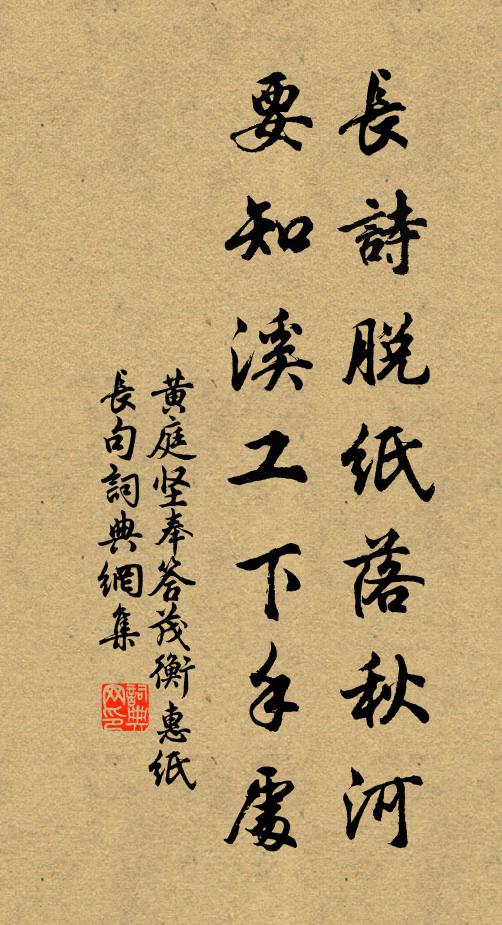 長詩脱紙落秋河
要知溪工下手處
黄庭坚奉答茂衡惠紙
長句詞典網集
詞典
网印